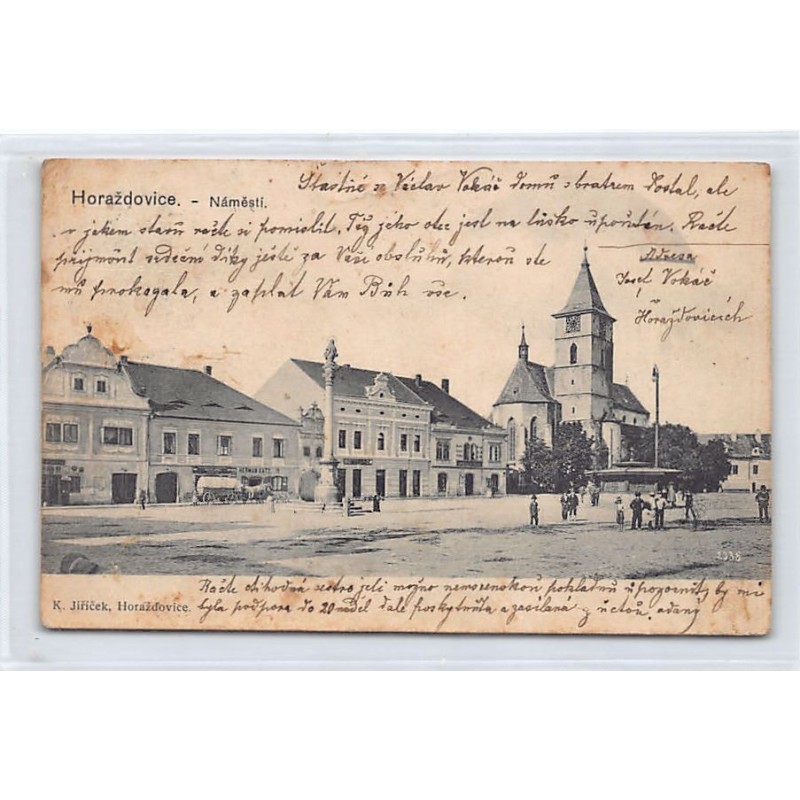 Horaždovice. - Náměstí.
Šťastně se Václav Vokáč domů s bratrem dostal, ale
v jakém stavu račte si pomislit. Též jeho otec jest na lůsko upoután. Račte
přijmout srdeční díky ještě za Vaši obsluhu, kterou ste
mu prokazala, a zaplať Vám Bůh vše.
Adresa
Josef Vokáč
Horažďovicích
HERMAN KATZ
2338
Račte ctihodná sestro jeli možno nemocenskou pokladnu upozornit, by mi
byla podpora do 20 neděl dále poskytnuta a zasílaná z účtou, adany
K. Jiříček, Horažďovice.